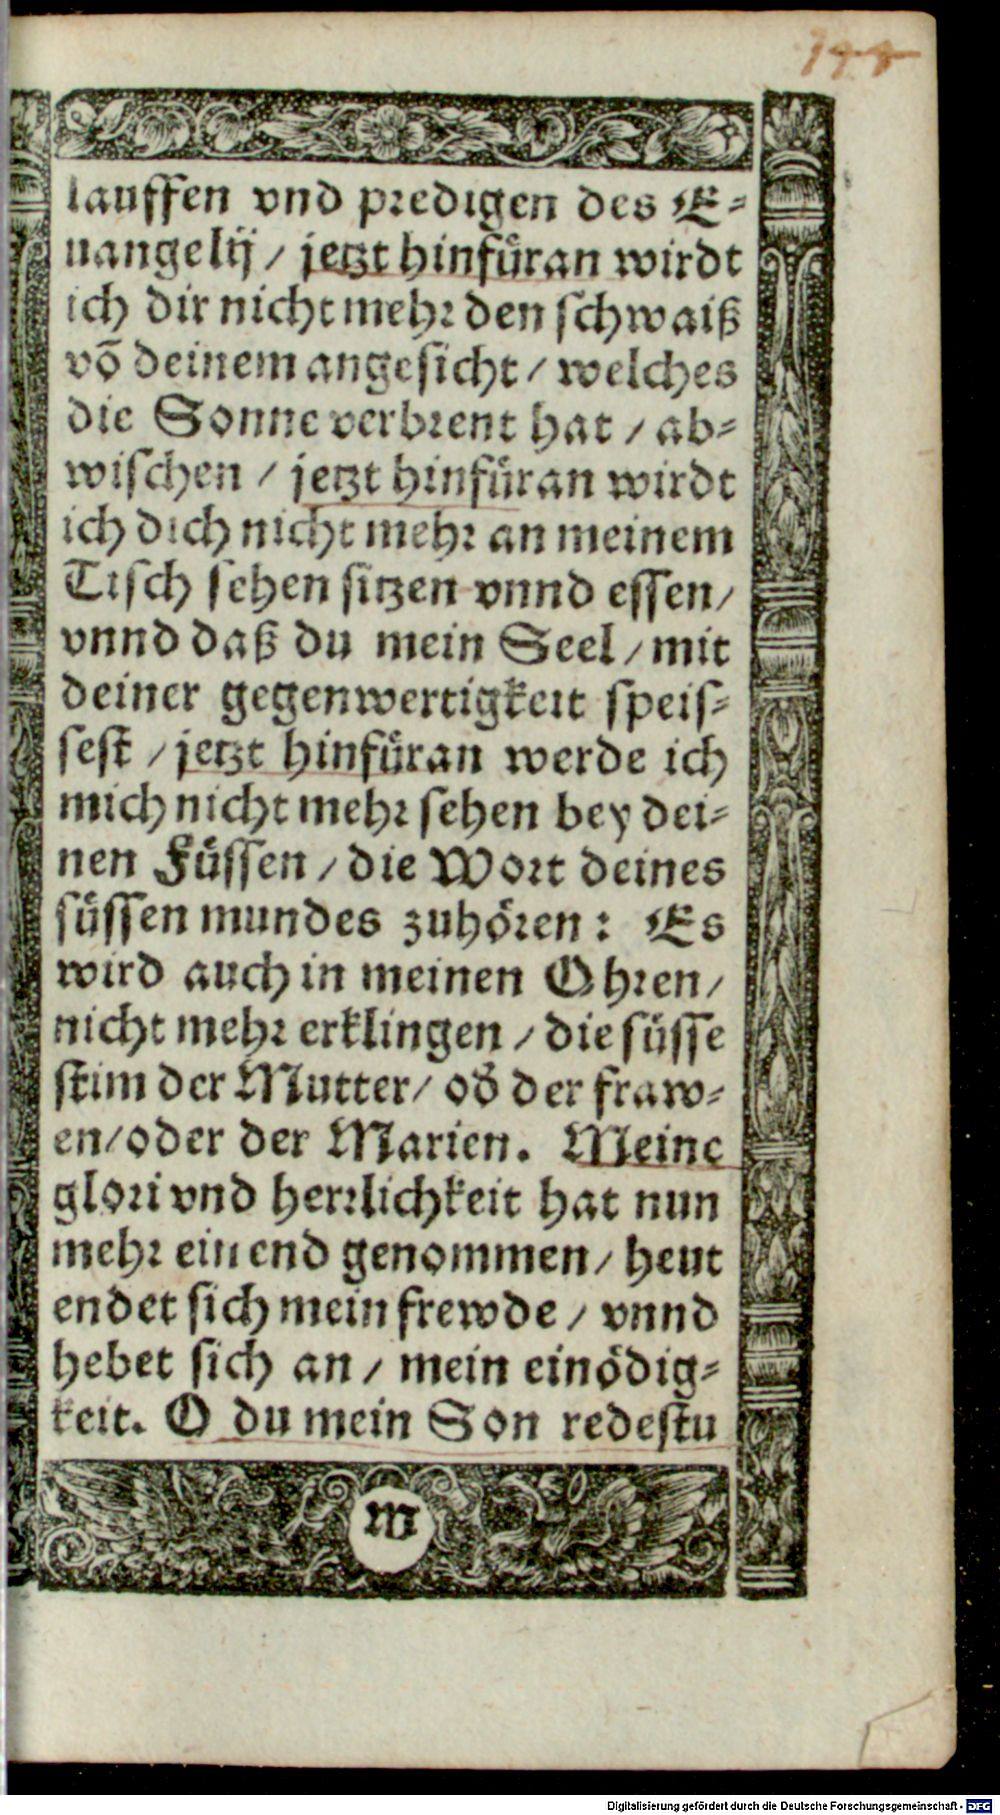 144
lauffen vnd predigen des E⸗
uangelij / jetzt hinfüran wirdt
ich dir nicht mehr den schwaiß
võ deinem angesicht / welches
die Sonne verbrent hat / ab⸗
wischen / jetzt hinfüran wirdt
ich dich nicht mehr an meinem
Tisch sehen sitzen vnnd essen /
vnnd daß du mein Seel / mit
deiner gegenwertigkeit speis⸗
sest / jetzt hinfüran werde ich
mich nicht mehr sehen bey dei⸗
nen Füssen / die Wort deines
süssen mundes zuhören: Es
wird auch in meinen Ohren /
nicht mehr erklingen / die süsse
stim der Mutter / od̕ der fraw⸗
en / oder der Marien. Meine
glori vnd herrlichkeit hat nun
mehr ein end genommen / heut
endet sich mein frewde / vnnd
hebet sich an / mein einödig⸗
keit. O du mein Son redestu
M
Digitalisierung gefördert durch die Deutsche Forschungsgemeinschaft - DFG